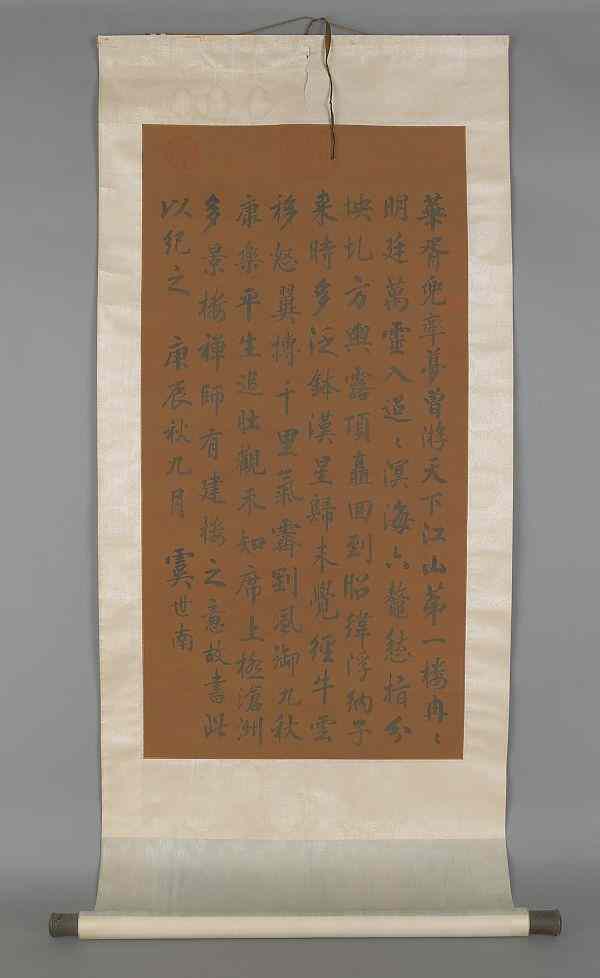 華胥兜率夢曾游天下江山第一樓冉〻
明廷萬靈入迢〻溟海六鼇愁指分
坱圠方輿露頂矗回到昭緯浮衲子
来時多泛鉢漢星歸未覺經牛雲
移怒翼摶千里氣霽剛風御九秋
康樂平生追壯觀未知席上極滄洲
多景樓禪師有建樓之意故書此
以紀之 庚辰秋九月 虞世南